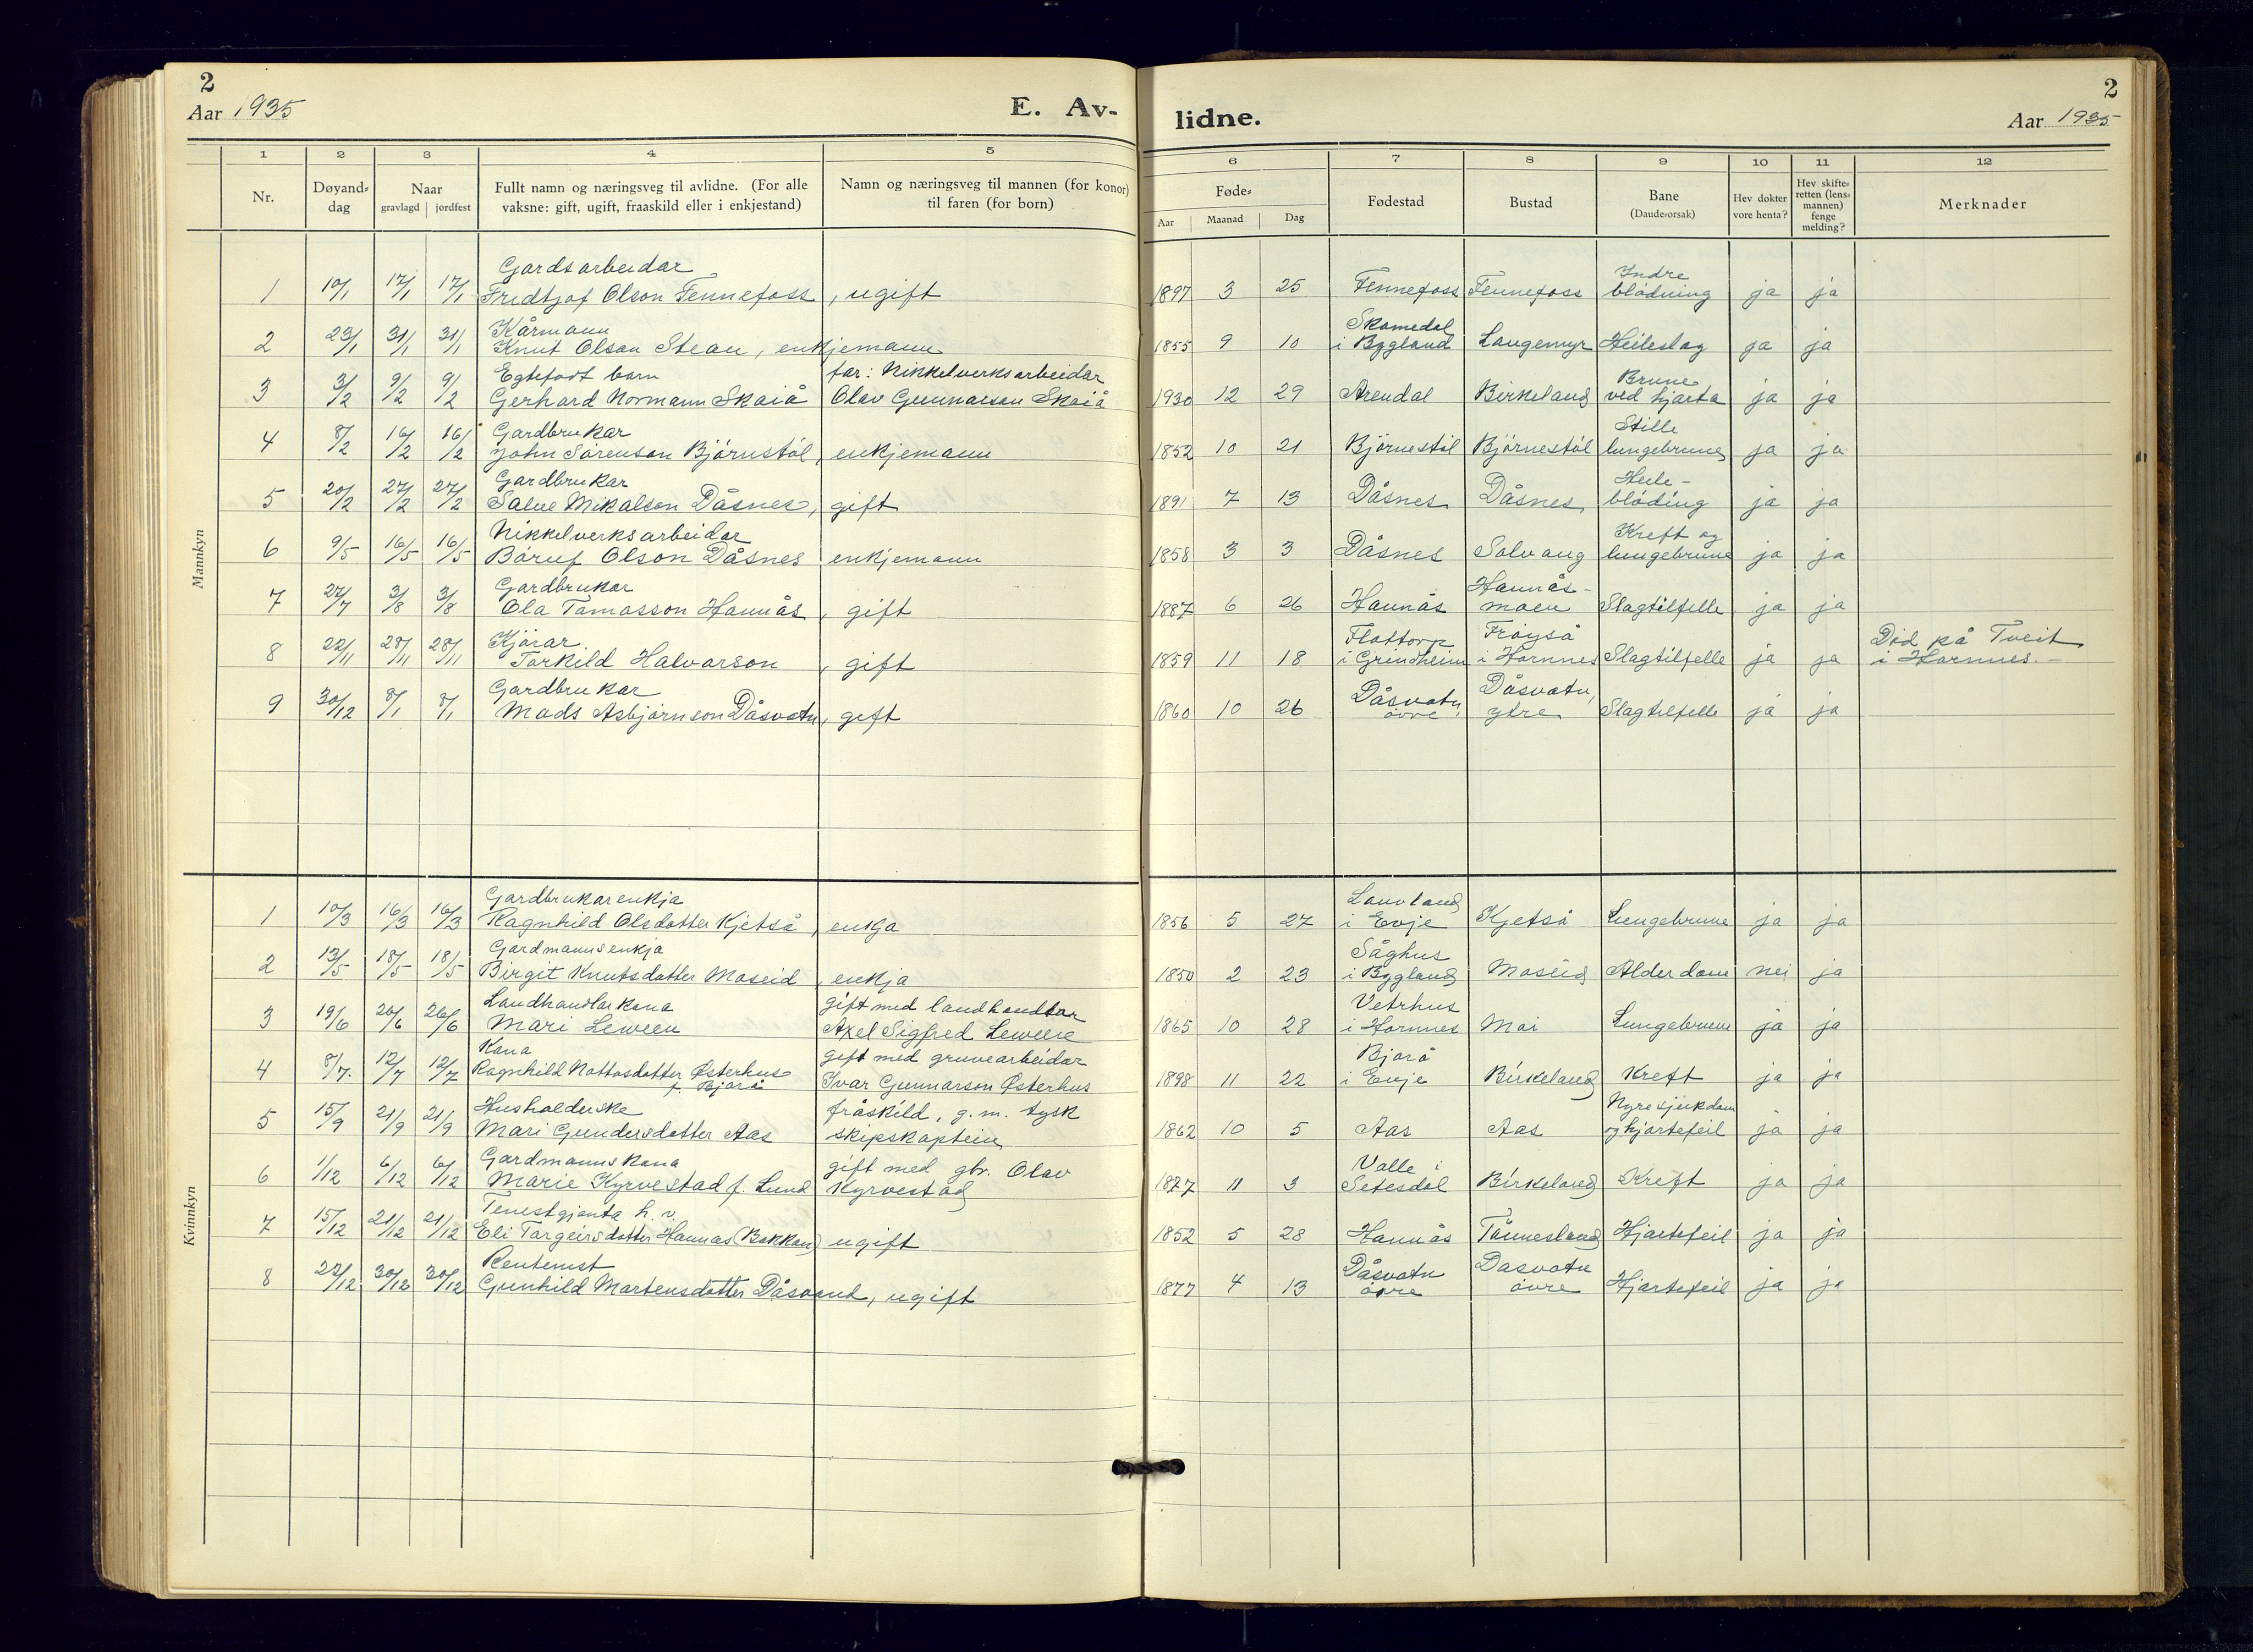 2
Aar 1935
E. Av-
lidne.
2
Aar 1935
1 2 3 4 5 6 7 8 9 10 11 12
Nr. | Døyand-dag | Naar gravlagd | jordfest | Fullt namn og næringsveg til avlidne. (For alle vaksne: gift, ugift, fraaskild eller i enkjestand) | Namn og næringsveg til mannen (for konor) til faren (for born) | Føde- Aar | Maanad | Dag | Fødestad | Bustad | Bane (Daude-orsak) | Hev dokter vore henta? | Hev skifte-retten (lens-mannen) fenge melding? | Merknader
Mannkyn
1 | 10/1 | 17/1 | 17/1 | Gardsarbeidar Fredtjof Olson Fennefoss | , ugift | 1897 | 3 | 25 | Fennefoss | Fennefoss | Indre blødning | ja | ja
2 | 23/1 | 31/1 | 31/1 | Kårmann Knut Olson Stean, enkjemann | 1855 | 9 | 10 | Skomedal i Bygland | Langemyr | Heileslag | ja | ja
3 | 3/2 | 9/2 | 9/2 | Egtefødt barn Gerhard Normann Skaiå | far: Nikkelverksarbeidar Olav Gunnarson Skaiå | 1930 | 12 | 29 | Arendal | Birkeland | Brune ved hjarta | ja | ja
4 | 8/2 | 16/2 | 16/2 | Gardbrukar John Sørenson Bjørnstøl | , enkjemann | 1852 | 10 | 21 | Bjørnestøl | Bjørnestøl | Stille lungebrune | ja | ja
5 | 20/2 | 27/2 | 27/2 | Gardbrukar Salve Mikalson Dåsnes, | gift | 1891 | 7 | 13 | Dåsnes | Dåsnes | Heile-blöding | ja | ja
6 | 9/5 | 16/5 | 16/5 | Nikkelverksarbeidar Båruf Olson Dåsnes | enkjemann | 1858 | 3 | 3 | Dåsnes | Solvang | Kreft og lungebrune | ja | ja
7 | 27/7 | 3/8 | 3/8 | Gardbrukar Ola Tomasson Hannås | , gift | 1887 | 6 | 26 | Hannås | Hannås-moen | Slagtilfelle | ja | ja
8 | 22/11 | 28/11 | 28/11 | Kjørar Torkild Halvorson | , gift | 1859 | 11 | 18 | Flottorp i Grindheim | Frøyså i Hornnes | Slagtilfelle | ja | ja | Død på Tveit i Hornnes.-
9 | 30/12 | 8/1 | 8/1 | Gardbrukar Mads Asbjørnson Dåsvatn | , gift | 1860 | 10 | 26 | Dåsvatn, øvre | Dåsvatn, ytre | Slagtilfelle | ja | ja
Kvinnkyn
1 | 10/3 | 16/3 | 16/3 | Gardbrukarenkja Ragnhild Olsdotter Kjetså | , enkja | 1856 | 5 | 27 | Lauvland i Evje | Kjetså | Lungebrune | ja | ja
2 | 13/5 | 18/5 | 18/5 | Gardmannsenkja Birgit Knutsdotter Moseid | , enkja | 1850 | 2 | 23 | Såghus i Bygland | Moseid | Alderdom | nei | ja
3 | 19/6 | 26/6 | 26/6 | Landhandlarkona Mari Leween | gift med landhandlar Axel Sigfred Leween | 1865 | 10 | 28 | Vetrhus i Hornnes | Moi | Lungebrune | ja | ja
4 | 8/7. | 12/7 | 12/7 | Kona Ragnhild Nottosdotter Østerhus f. Bjorå | gift med gruvearbeidar Ivar Gunnarson Østerhus | 1898 | 11 | 22 | Bjorå i Evje | Birkeland | Kreft | ja | ja
5 | 15/9 | 21/9 | 21/9 | Husholderske Mari Gundersdotter Aas | fråskild, g.m. tysk skipskaptein | 1862 | 10 | 5 | Aas | Aas | Nyresjukdom og hjartefeil | ja | ja
6 | 1/12 | 6/12 | 6/12 | Gardmannskona Marie Kyrvestad f. Lund | gift med gbr. Olav Kyrvestad | 1877 | 11 | 3 | Valle i Setesdal | Birkeland | Kreft | ja | ja
7 | 15/12 | 21/12 | 21/12 | Tenestgjenta h. v. Eli Targeirsdotter Hannås (Bakkan) | ugift | 1852 | 5 | 28 | Hannås | Tånnesland | Hjartefeil | ja | ja
8 | 22/12 | 30/12 | 30/12 | Rentenist Gunhild Martensdotter Dåsvand, ugift | 1877 | 4 | 13 | Dåsvatn øvre | Dåsvatn øvre | Hjartefeil | ja | ja